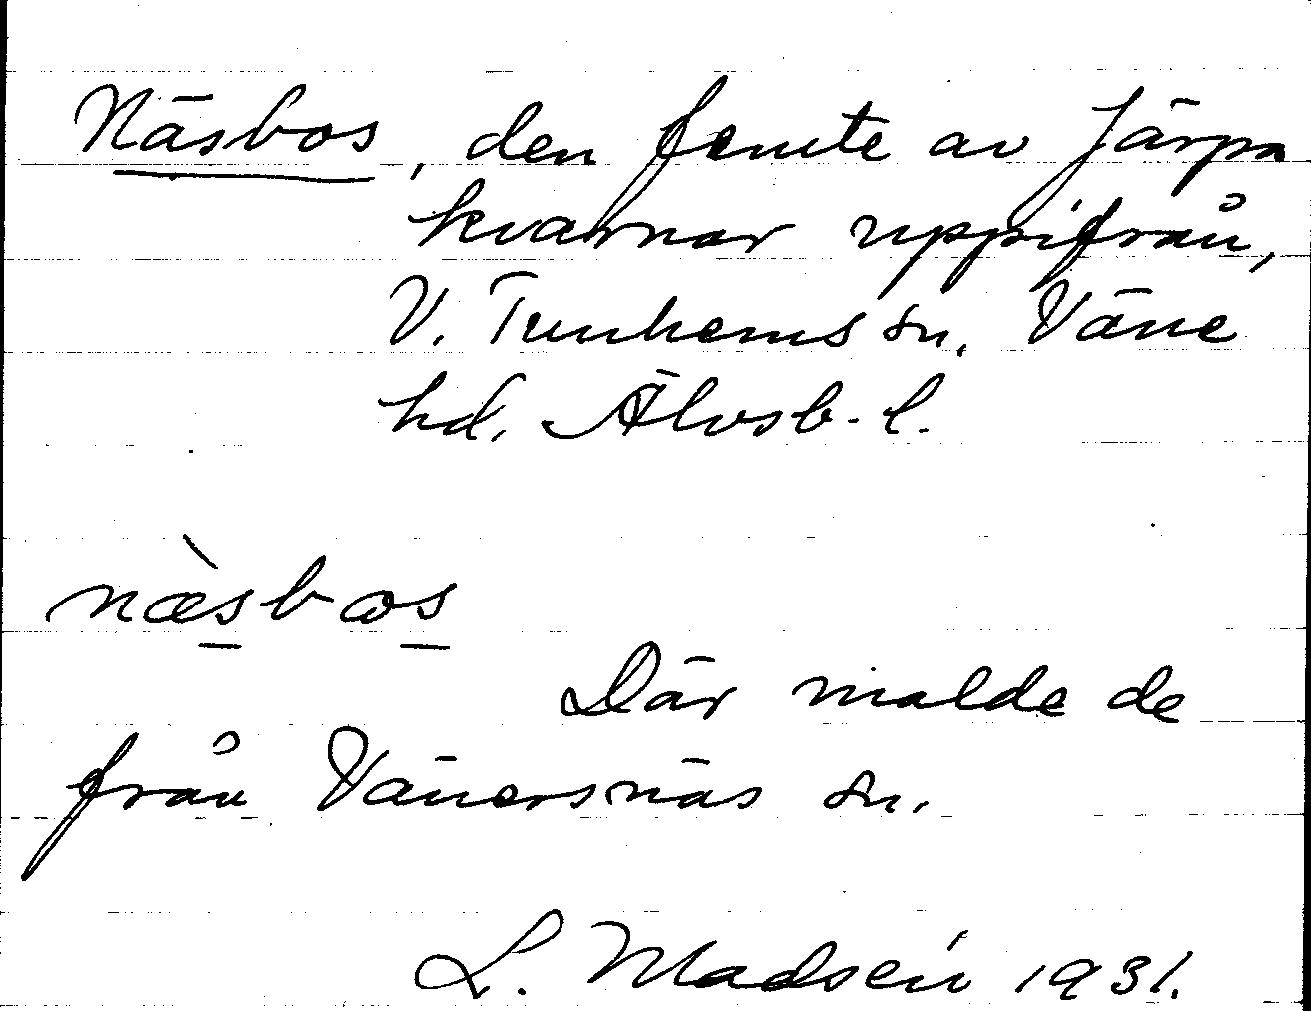 Näsbos, den femte av Järpa
kvarnar uppifrån,
V. Tunhems sn, Väne
hd. Älvsb. l.
næ̀sbɷs
Där malde de
från Vänersnäs sn.
L. Madsén 1931.